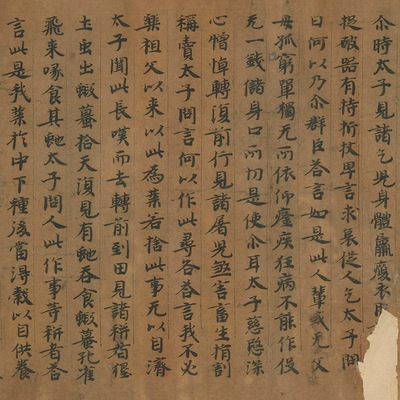 尒時太子見諸乞兒身體羸瘦衣
捉破器有持折杖卑言求哀從人乞太子問
曰何以乃尒群臣荅言如是此人輩或无父
母孤窮單獨无所依仰癃疾狂病不能作役
无一錢儲身口所切是使尒耳太子慈愍深
心憎悼轉復前行見諸屠兒煞害畜生割
稱賣太子問言何以作此尋各荅言我不必
樂祖父以来以此為業若捨此事无以自濟
太子聞此長嘆而去轉前到田見諸耕者墾
土虫出蝦蟇拾天復見有虵吞食蝦蟇孔雀
飛来啄食其虵太子問人此作事等耕者荅
言此是我業於中下種後當得穀以自供養